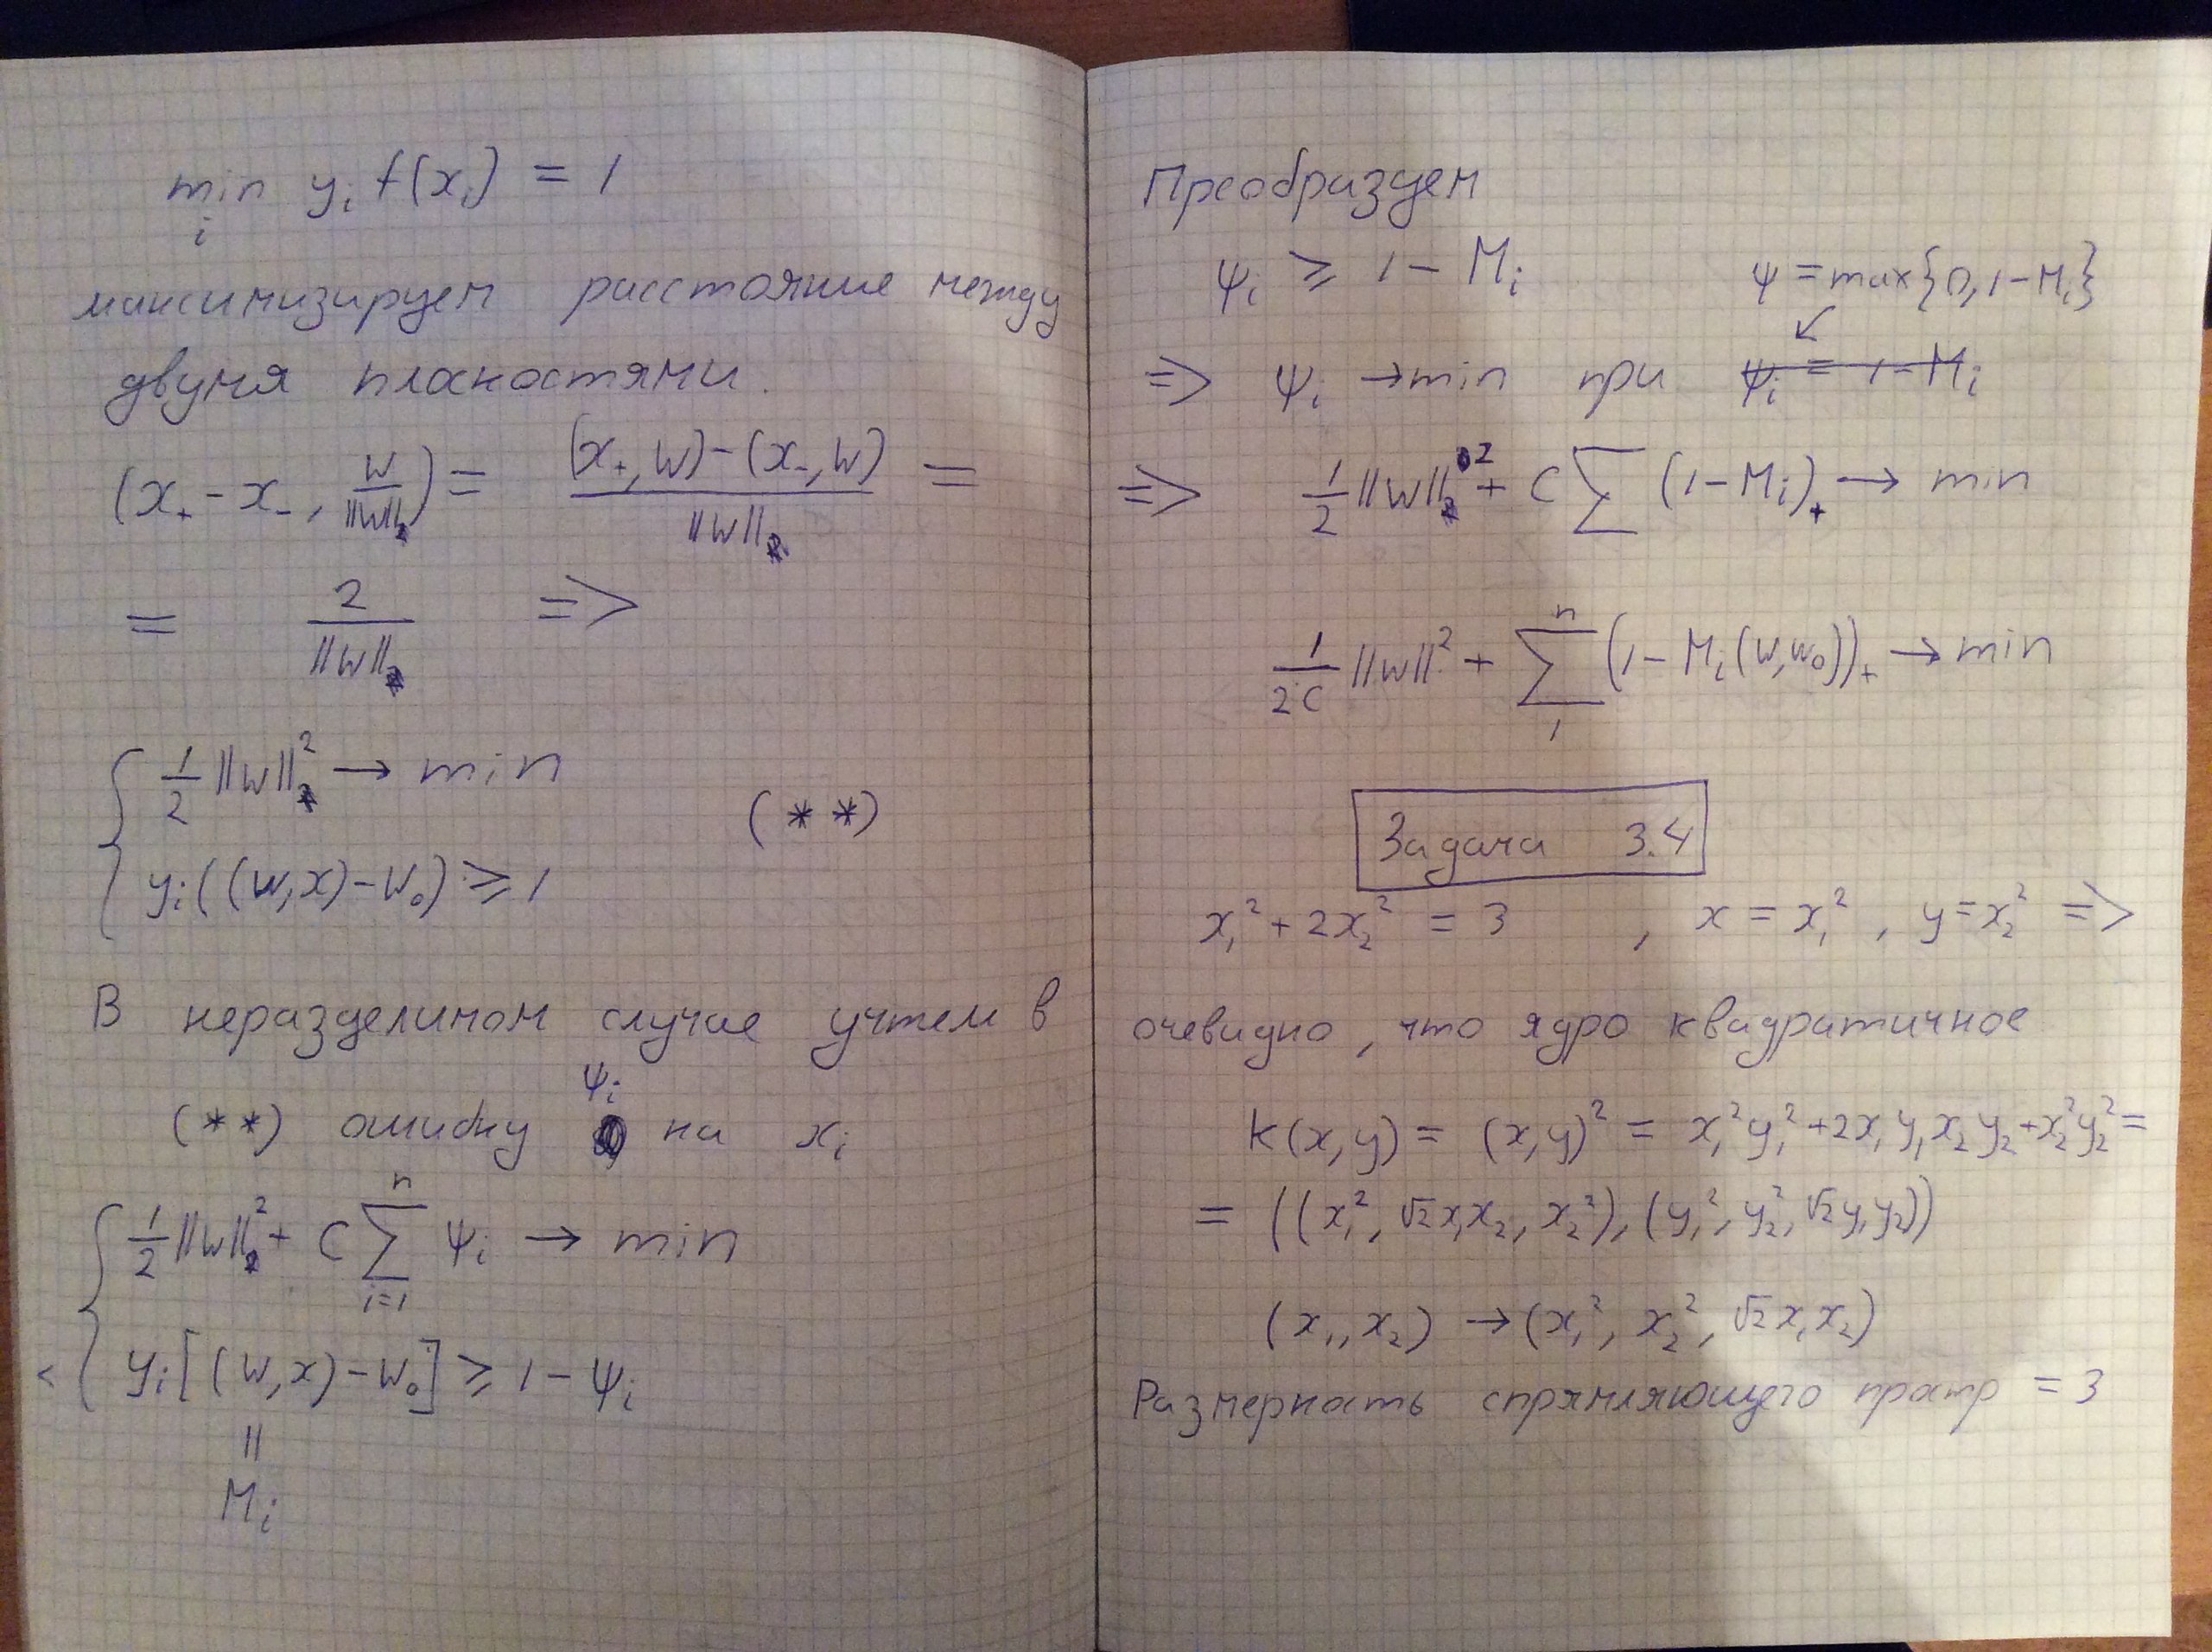 min y_i f(x_i) = 1
i
максимизируем расстояние между
двумя плоскостями.
(x₊ - x₋, w/||w||₂) = ((x₊, w) - (x₋, w))/||w||₂ =
= 2/||w||₂ =>
{ 1/2 ||w||₂² → min
(**)
y_i((w,x) - w₀) ≥ 1
В неразделимом случае учтем в
(**) ошибку ψ_i на x_i
{ 1/2 ||w||₂² + C ∑_{i=1}^{n} ψ_i → min
y_i[(w,x) - w₀] ≥ 1 - ψ_i
||
M_i
Преобразуем
ψ_i ≥ 1 - M_i ψ = max{0, 1-M_i}
↙
=> ψ_i → min при ψ_i = 1 - M_i
=> 1/2 ||w||₂² + C ∑ (1-M_i)₊ → min
1/2C ||w||² + ∑_{1}^{n} (1 - M_i(w,w₀))₊ → min
Задача 3.4
x₁² + 2x₂² = 3 , x = x₁², y = x₂² =>
очевидно, что ядро квадратичное
K(x,y) = (x,y)² = x₁²y₁² + 2x₁y₁x₂y₂ + x₂²y₂² =
= ((x₁², √2x₁x₂, x₂²), (y₁², y₂², √2y₁y₂))
(x₁, x₂) → (x₁², x₂², √2x₁x₂)
Размерность спрямляющего простр = 3